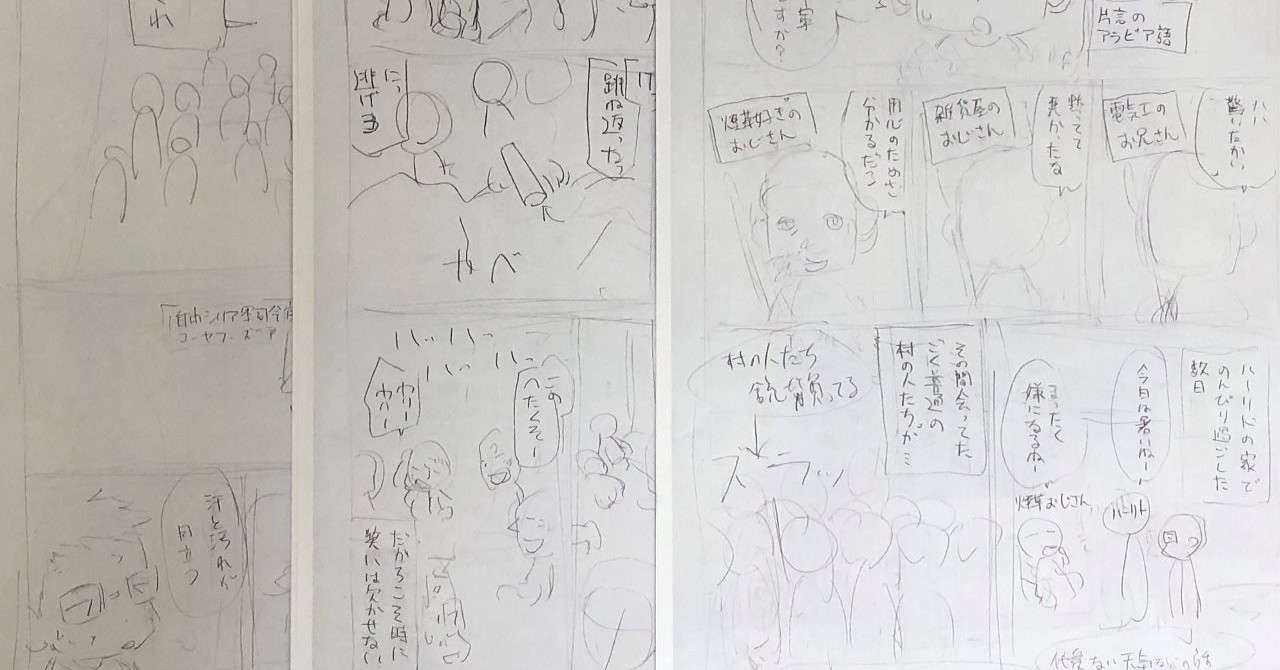 片言の
アラビア語
すか？
ハハ
驚いたかい
電気工の
お兄さん
黙ってて
悪かったな
雑貨屋の
おじさん
用心のためさ
分かるだろ
煙草好きの
おじさん
ハーリドの家で
のんびり過ごした
数日
今日は暑いねー
まったく
嫌になるねー
煙草おじさん
ハーリド
その間会ってた
ごく普通の
村の人たちが…
村の人たち
銃背負ってる
ズラッ
跳ね返った
にっ
逃げろ
やべ
ハッハッ
ハハ
この
へたくそー
だからこそ時に
笑いは欠かせない
れ
「自由シリア軍司令官
汗と汚れが
目立つ